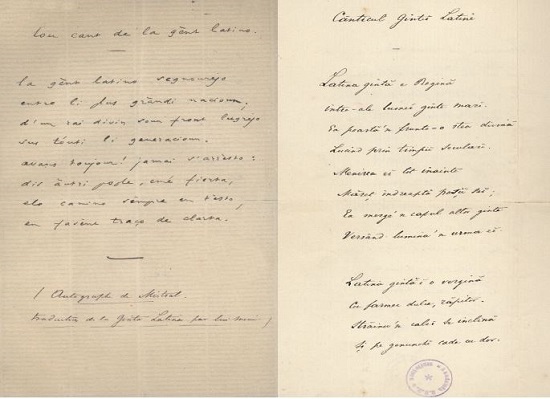 Lou cant de la gènt latino.
la gènt latino segnourejo
entre li plus gràndi nacioun,
d'un rai divin soun front
sus tóuti li generacioun.
avans toujour! jamai s'arrèsto:
dis àutri pople, ené fierta,
elo camino sèmpre en tèsto,
en fasènt traço de clarta.
( Autographe de Mistral
traduction de la Ginta Latina par lui )
Cânticul Gintei Latine
Latina gintă e Regină
Intre-ale lumei ginte mari.
Ea poartă 'n frunte-o stea divină
Lucind prin timpii seculari.
Menirea ei tot înainte
Măreț îndreaptă pașii sĕi;
Ea merge 'n capul altor ginte
Versând lumina 'n urma ei.
Latina gintă i o vergină
Cu farmec dulce, răpitor.
Străinu 'n cale-i se înclină
Și pe genunchi cade cu dor.